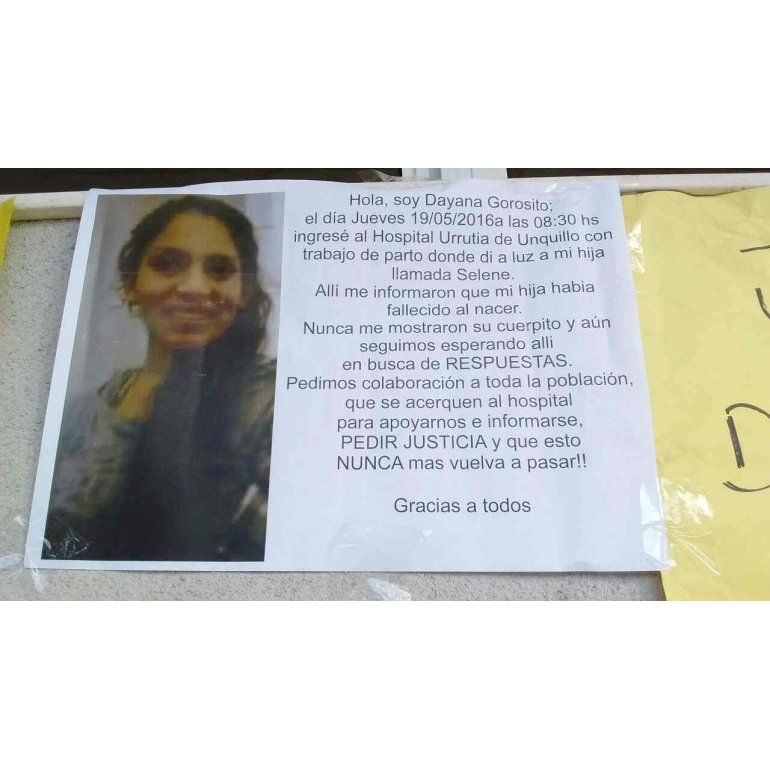 Hola, soy Dayana Gorosito;
el día Jueves 19/05/2016a las 08:30 hs
ingresé al Hospital Urrutia de Unquillo con
trabajo de parto donde di a luz a mi hija
llamada Selene.
Allí me informaron que mi hija habia
fallecido al nacer.
Nunca me mostraron su cuerpito y aún
seguimos esperando alli
en busca de RESPUESTAS.
Pedimos colaboración a toda la población,
que se acerquen al hospital
para apoyarnos e informarse,
PEDIR JUSTICIA y que esto
NUNCA mas vuelva a pasar!!
Gracias a todos